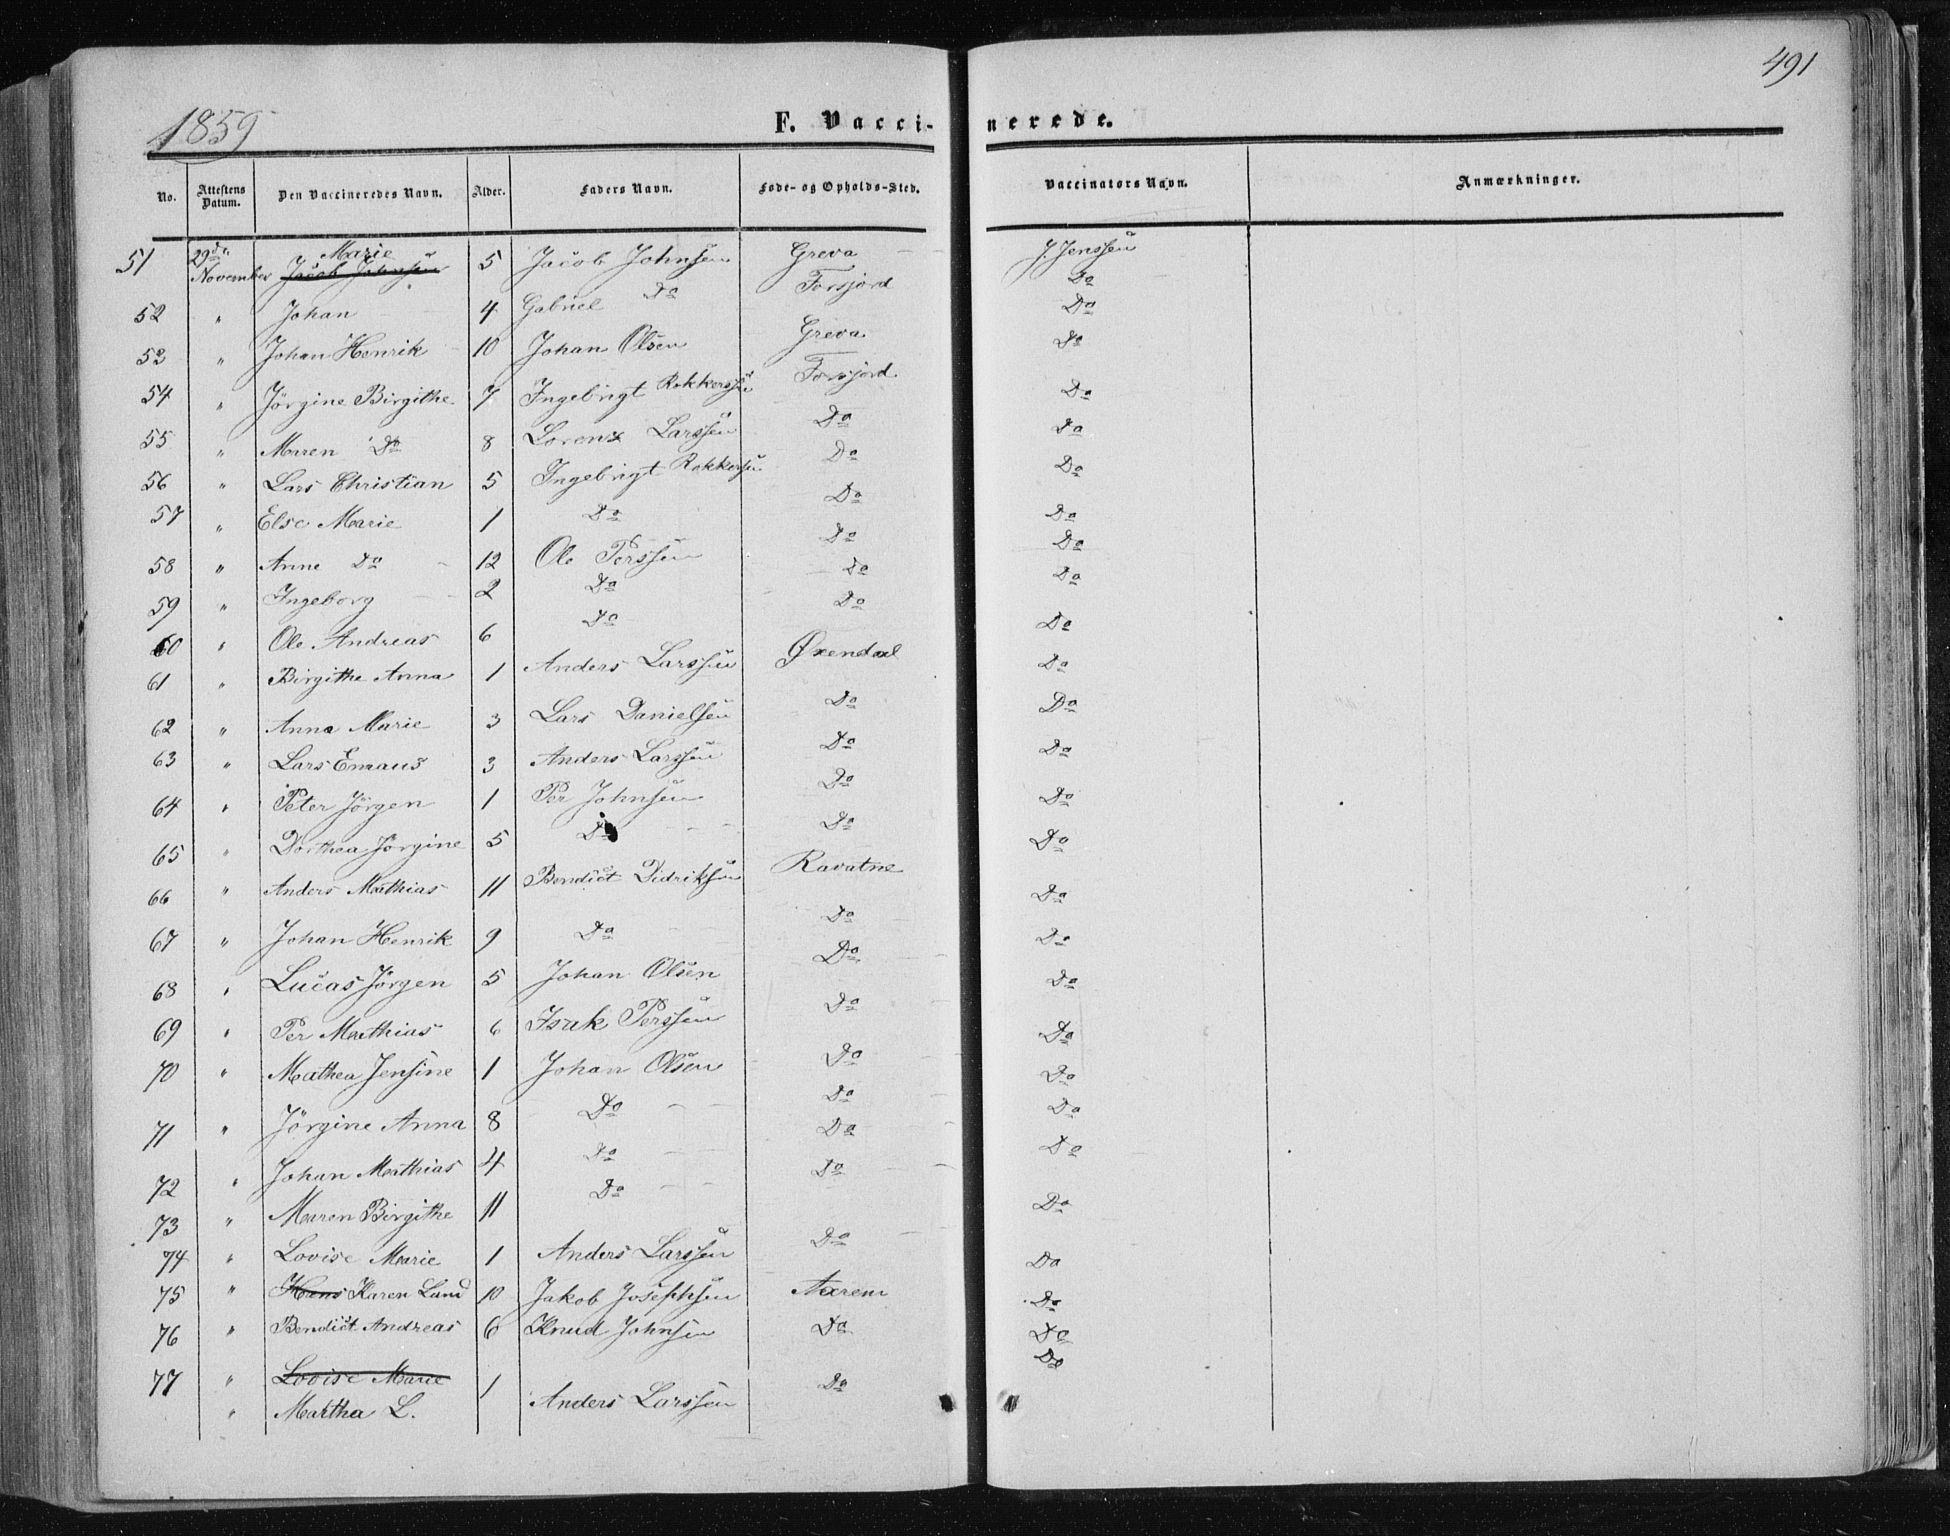 491
1859
F. Vacci- nerede.
No. Attestens Datum. Den Vaccineredes Navn. Alder. Faders Navn. Føde- og Opholds-Sted. Vaccinators Navn. Anmærkninger.
51 29de November Marie Jacob Johnsen 5 Jacob Johnsen Greva J. Jenssen
52 " Johan 4 Gabriel Do Forsjord Do
Do
53 " Johan Henrik 10 Johan Olsen Greva Do
54 " Jörgine Birgithe 7 Ingebrigt Rokkerssen Forsjord Do
55 " Maren Do 8 Lorenz Larssen Do Do
56 " Lars Christian 5 Ingebrigt Rokkerssen Do Do
57 " Else Marie 1 Do Do Do
58 " Anne Do 12 Ole Perssen Do Do
59 " Ingeborg 2 Do Do Do
60 " Ole Andreas 6 Do Do Do
61 " Birgithe Anna 1 Anders Larssen Øxendal Do
62 " Anna Marie 3 Lars Danielsen Do Do
63 " Lars Emaus 3 Anders Larssen Do Do
64 " Peter Jörgen 1 Per Johnsen Do Do
65 " Dorthea Jörgine 5 Do Do Do
66 " Anders Mathias 11 Bendict Didriksen Ravatne Do
67 " Johan Henrik 9 Do Do Do
68 " Lucas Jörgen 5 Johan Olsen Do Do
69 " Per Mathias 6 Isak Perssen Do Do
70 " Mathea Jensine 1 Johan Olsen Do Do
71 " Jörgine Anna 8 Do Do Do
72 " Johan Mathias 4 Do Do Do
73 " Maren Birgithe 11 Do Do Do
74 " Lovise Marie 1 Anders Larssen Do Do
75 " Hans Karen Land 10 Jakob Josephsen Do
76 " Bendict Andreas 6 Knud Johnsen Do Do
77 " Lovise Marie 1 Anders Larssen Do Do
" Martha L.